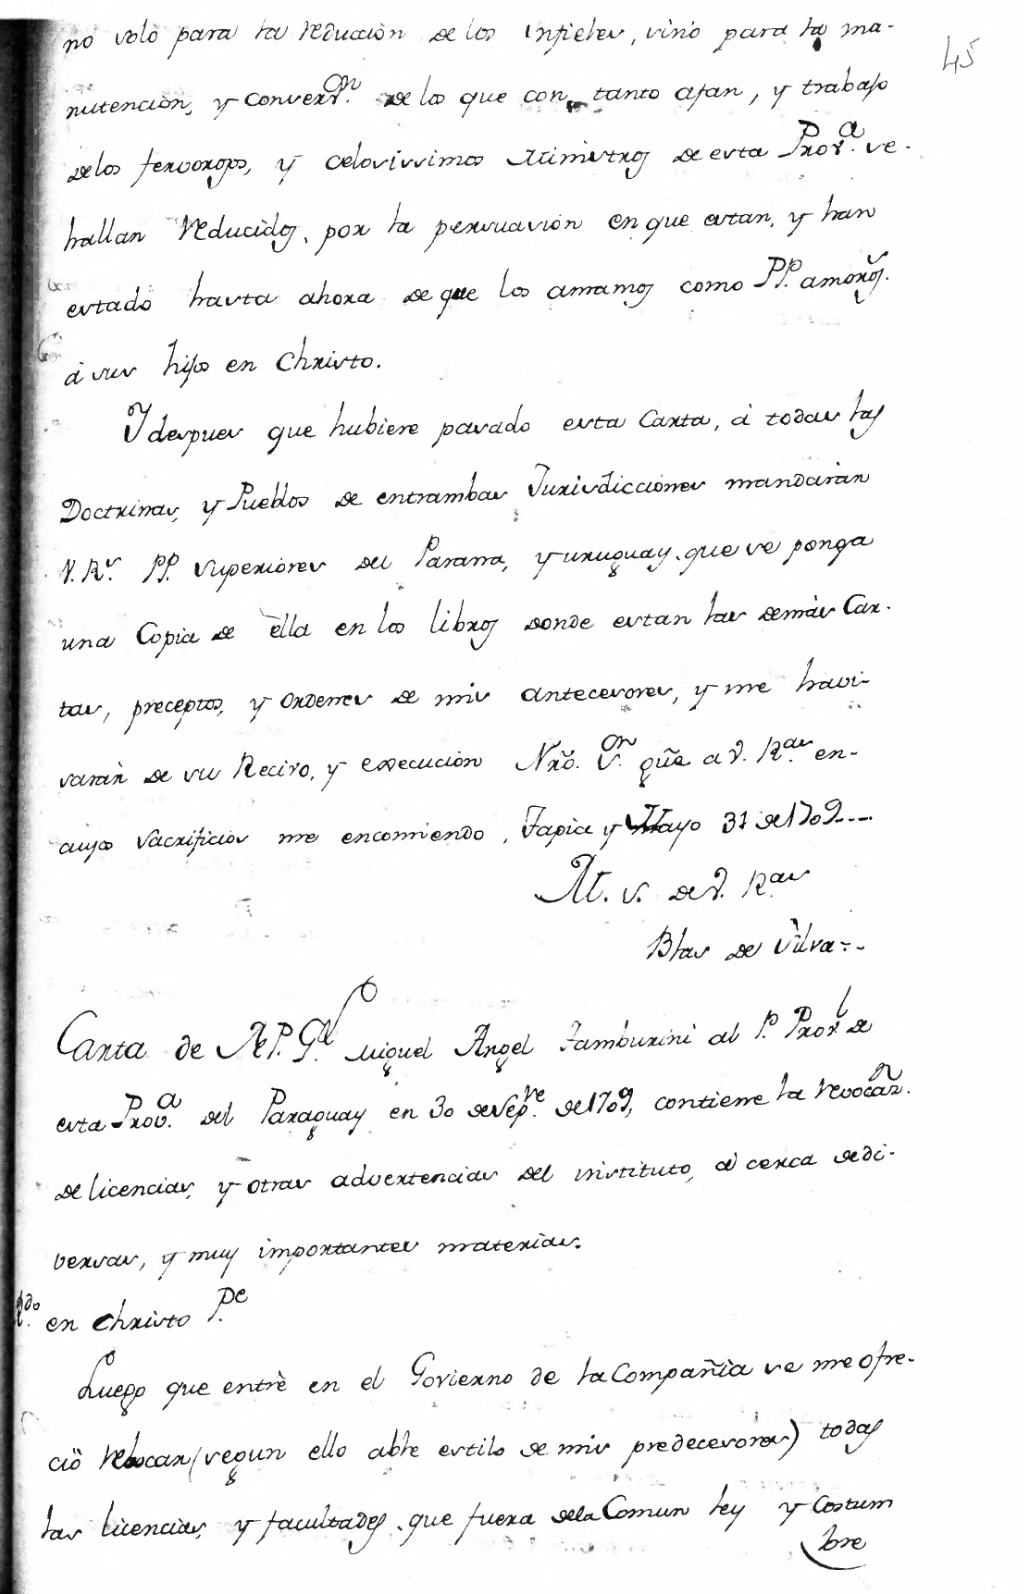 45
no solo para la reduccion de los infieles, sino para la ma-
nutencion, y convers.on de los que con tanto afan, y trabajo
de los fervorosos, y celosissimos Ministros de esta Prov.a se
hallan reducidos, por la persuasion en que estan, y han
estado hasta ahora de que los amamos como PP. amoros.s
à sus hijos en Christo.
Y despues que hubiere pasado esta Carta, à todas las
Doctrinas, y Pueblos de entrambas Jurisdicciones mandaràn
V. R.s PP. Superiores del Parana, y uruguay, que se ponga
una Copia de ella en los libros donde estan las demàs Car-
tas, preceptos, y ordenes de mis antecesores, y me havi-
saràn de su Recivo, y execucion Nrõ. S.or güe a V. R.as en-
cuyos Sacrificios me encomiendo, Tapia y Mayo 31 de 1709---
M. S. de V. R.as
Blas de Silva--
Carta de N. P. G.l Miguel Angel Tamburini al P. Prov.l de
esta Prov.a del Paraguay en 30 de Sep.re de 1709, contiene la revocaz.n
de licencias, y otras advertencias del instituto, à cerca de di-
versas, y muy importantes materias.
R.do en Christo P.e
Luego que entrè en el Govierno de la Compañia se me ofre-
ciò rebocar (segun ello abre estilo de mis predecesores) todas
las licencias, y facultades, que fuera de la Comun ley y Costum
bre